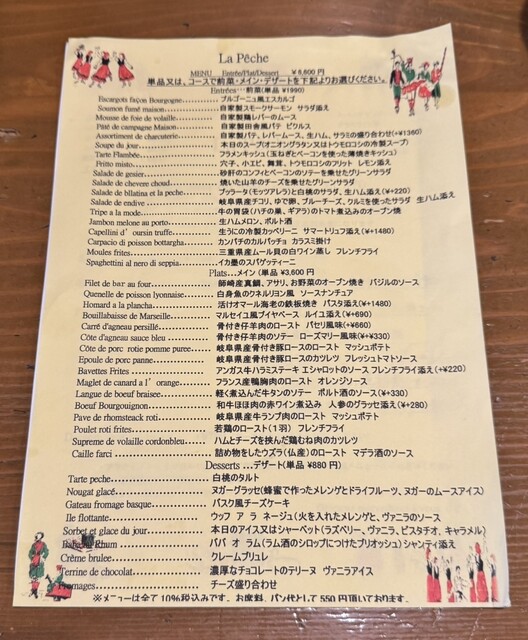 La Pêche
MENU Entrée/Plat/Dessert ¥8,600円
単品又は、コースで前菜・メイン・デザートを下記よりお選びください。
Entrées…前菜(単品 ¥1990)
Escargots façon Bourgogne……… ブルゴーニュ風エスカルゴ
Soumon fumé maison……… 自家製スモークサーモン サラダ添え
Mousse de foie de volaille……… 自家製鶏レバーのムース
Pâté de campagne Maison……… 自家製田舎風パテ ピクルス
Assortiment de charcuterie……… 自家製パテ、レバームース、生ハム、サラミの盛り合わせ(+¥1360)
Soupe du jour……… 本日のスープ(オニオングラタン又はトウモロコシの冷製スープ)
Tarte Flambée……… フラメンキッシュ(玉ねぎとベーコンを使った薄焼きキッシュ)
Fritto misto……… 穴子、小エビ、舞茸、トウモロコシのフリット レモン添え
Salade de gesier……… 砂肝のコンフィとベーコンのソテーを乗せたグリーンサラダ
Salade de chevere choud……… 焼いた山羊のチーズを乗せたグリーンサラダ
Salade de bllatina et la peche……… ブラータ(モッツアレラ)と白桃のサラダ、生ハム添え(+¥220)
Salade de endive……… 岐阜県産チコリ、ゆで卵、ブルーチーズ、クルミを使ったサラダ 生ハム添え
Tripe a la mode……… 牛の胃袋(ハチの巣、ギアラ)のトマト煮込みのオーブン焼
Jambon melone au porto……… 生ハムメロン、ポルト酒
Capellini d'oursin truffe……… 生うにの冷製カッペリーニ サマートリュフ添え(¥+1480)
Carpacio di poisson bottargha……… カンパチのカルパッチョ カラスミ掛け
Moules frites……… 三重県産ムール貝の白ワイン蒸し フレンチフライ
Spaghettini al nero di seppia……… イカ墨のスパゲッティーニ
Plats…メイン(単品 ¥3,600円
Filet de bar au four……… 師崎産真鯛、アサリ、お野菜のオーブン焼き バジルのソース
Quenelle de poisson lyonnaise……… 白身魚のクネルリヨン風 ソースナンチュア
Homard a la plancha……… 活けオマール海老の鉄板焼き パスタ添え(¥+1480)
Bouillabaisse de Marseille……… マルセイユ風ブイヤベース ルイユ添え(¥+690)
Carré d'agneau persillé……… 骨付き仔羊肉のロースト パセリ風味(+¥660)
Côte d'agneau sauce bleu……… 骨付き仔羊肉のソテー ローズマリー風味(¥+330)
Côte de porc rotie pomme puree……… 岐阜県産骨付き豚ロースのロースト マッシュポテト
Epoule de porc panne……… 岐阜県産骨付き豚ロースのカツレツ フレッシュトマトソース
Bavettes Frites……… アンガス牛ハラミステーキ エシャロットのソース フレンチフライ添え(+¥220)
Maglet de canard a l'orange……… フランス産鴨胸肉のロースト オレンジソース
Langue de boeuf braisee……… 軽く煮込んだ牛タンのソテー ポルト酒のソース(¥+330)
Boeuf Bourgouignon……… 和牛ほほ肉の赤ワイン煮込み 人参のグラッセ添え(¥+280)
Pave de rhomsteack roti……… 岐阜県産牛ランプ肉のロースト マッシュポテト
Poulet roti frites……… 若鶏のロースト(1羽) フレンチフライ
Supreme de volaille cordonbleu……… ハムとチーズを挟んだ鶏むね肉のカツレツ
Caille farci……… 詰め物をしたウズラ(仏産)のロースト マデラ酒のソース
Desserts …デザート(単品 ¥880円)
Tarte peche……… 白桃のタルト
Nougat glacé……… ヌガーグラッセ(蜂蜜で作ったメレンゲとドライフルーツ、ヌガーのムースアイス)
Gateau fromage basque……… バスク風チーズケーキ
Ile flottante……… ウッフ ア ラ ネージュ(火を入れたメレンゲと、ヴァニラのソース)
Sorbet et glace du jour……… 本日のアイス又はシャーベット(ラズベリー、ヴァニラ、ピスタチオ、キャラメル)
Rhum……… ババ オ ラム(ラム酒のシロップにつけたブリオッシュ)シャンティ添え
Crème brulee……… クレームブリュレ
Terrine de chocolat……… 濃厚なチョコレートのテリーヌ ヴァニラアイス
Fromages……… チーズ盛り合わせ
※メニューは全て10%税込みです。お席料、パン代として550円頂いております。